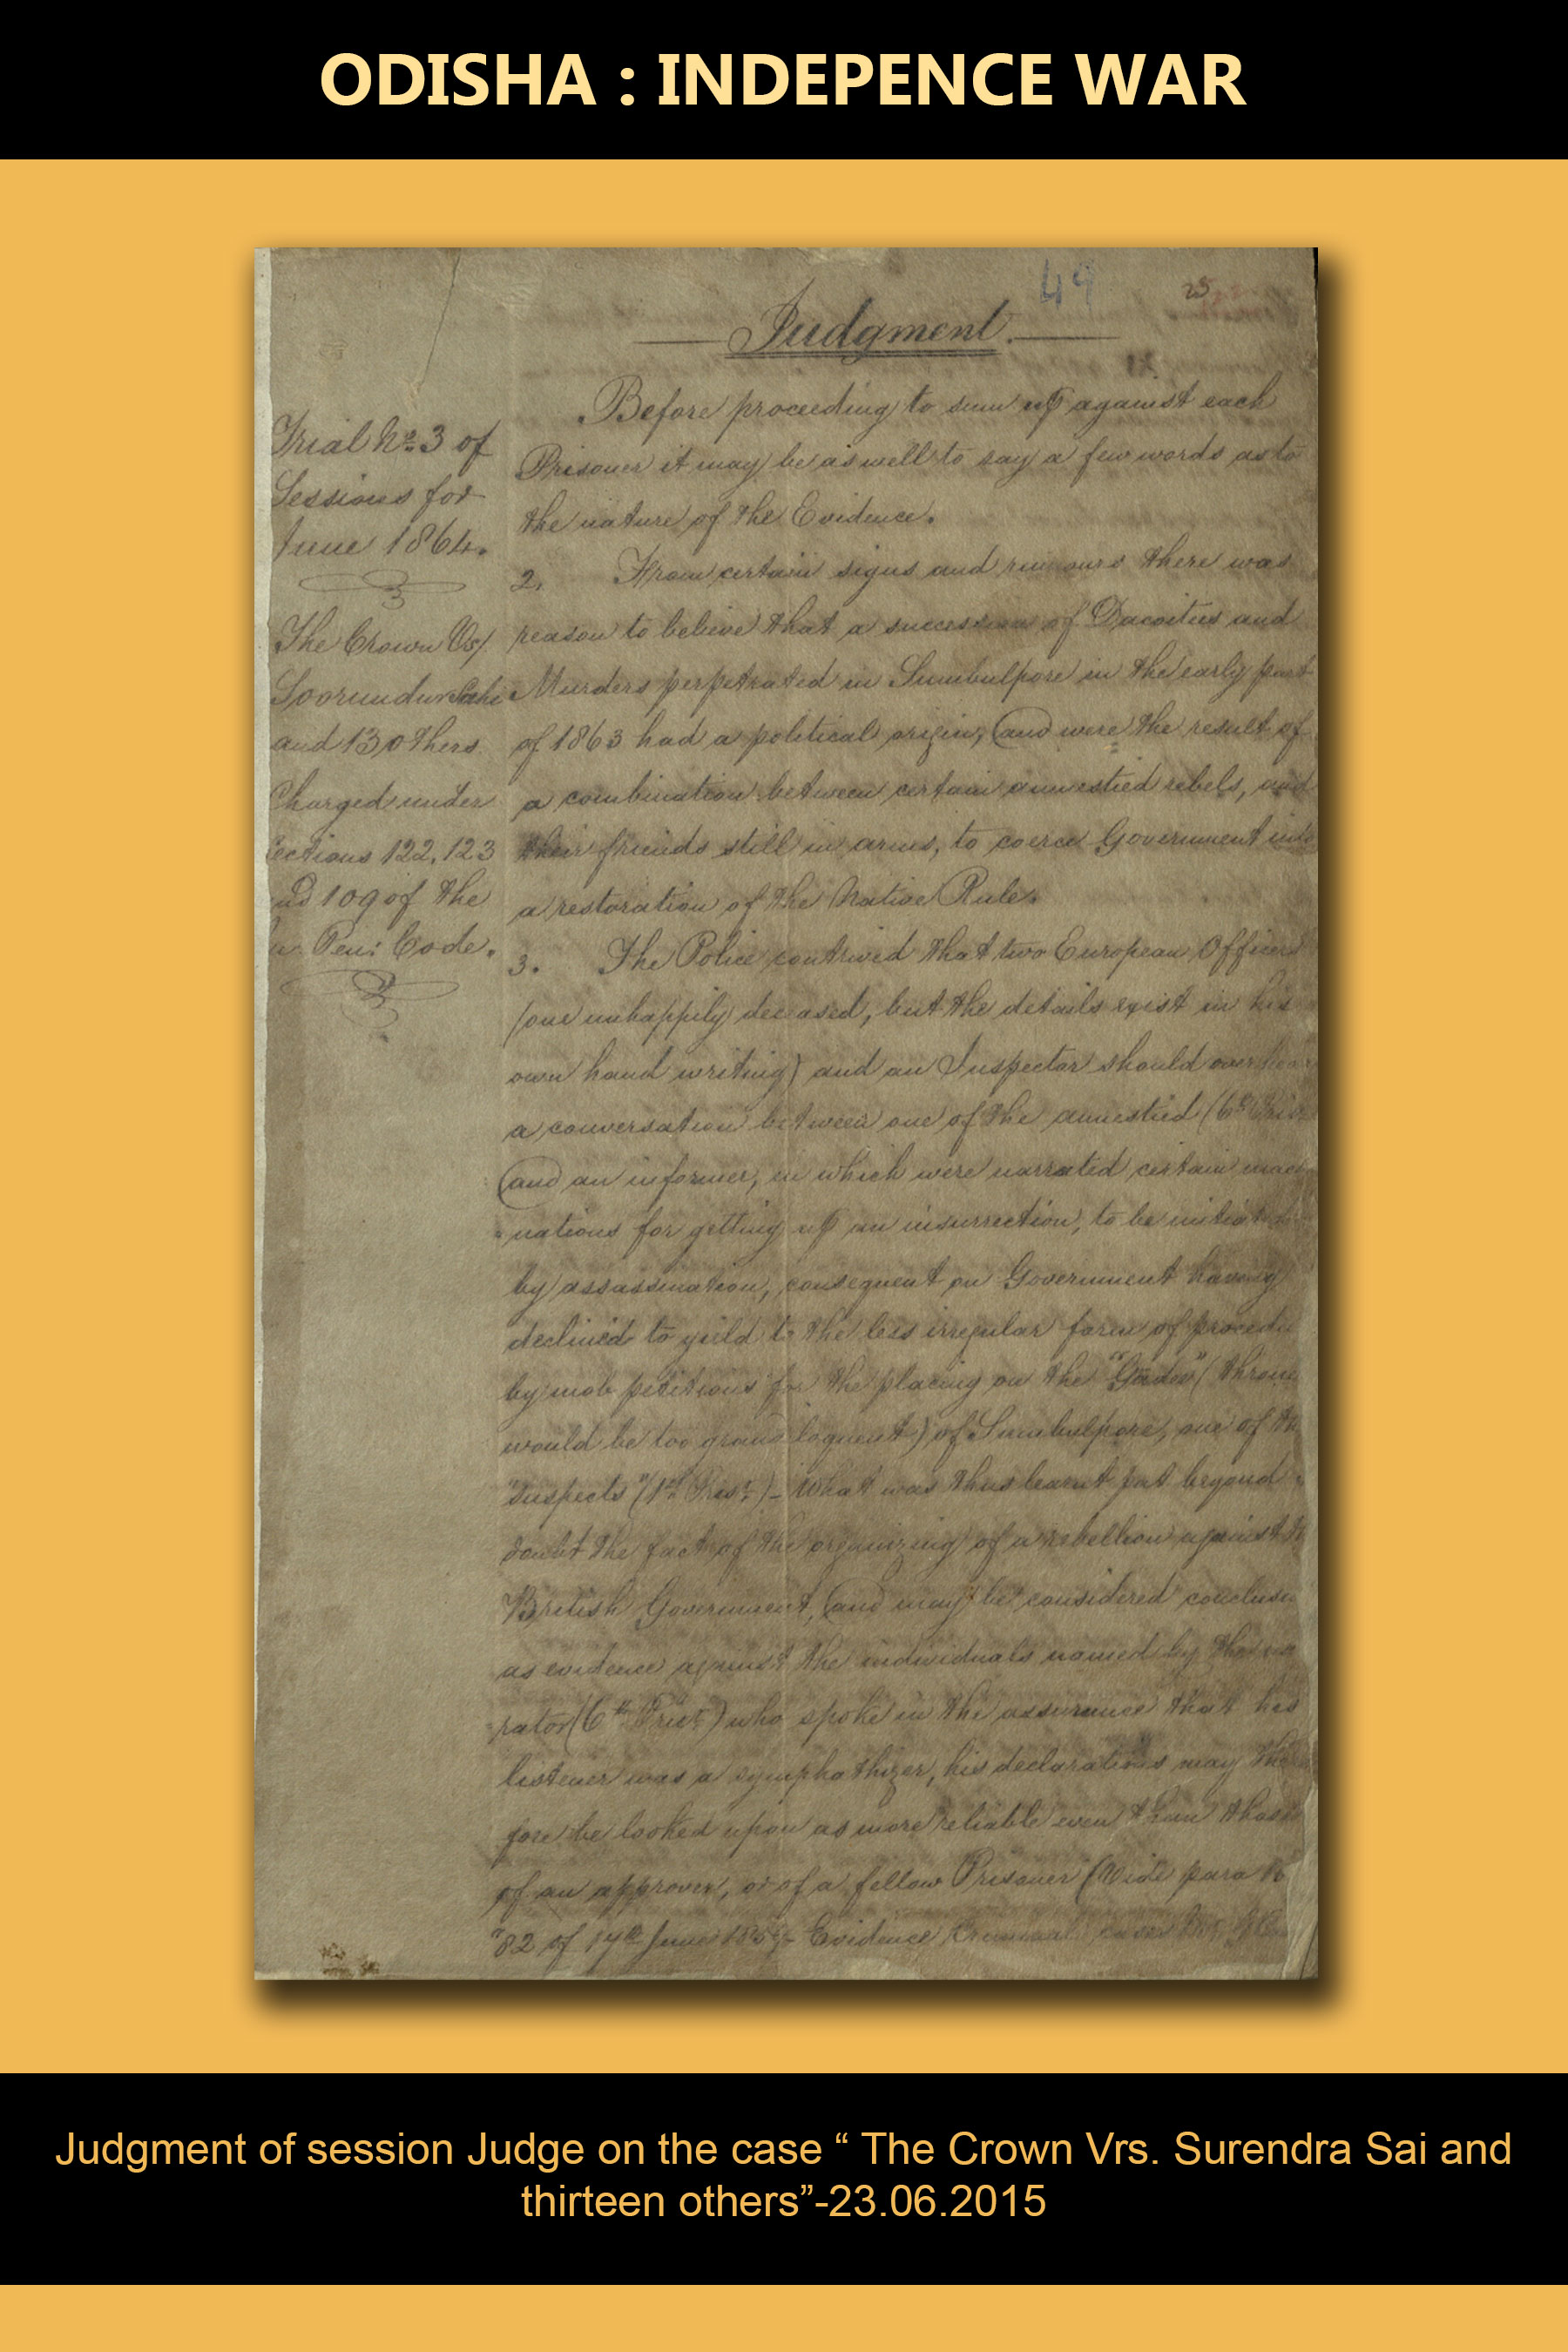 ODISHA : INDEPENCE WAR
49
25
Judgment.
Trial No. 3 of
Sessions for
June 1864.
The Crown Vs/
Soorundur Sahi
and 13 others
Charged under
ections 122, 123
nd 109 of the
Pen: Code.
Before proceeding to sum up against each
Prisoner it may be as well to say a few words as to
the nature of the Evidence.
2. From certain signs and rumours there was
reason to believe that a succession of Dacoities and
Murders perpetrated in Sumbulpore in the early part
of 1863 had a political origin, and were the result of
a combination between certain amnestied rebels, and
their friends still in arms, to coerce Government into
a restoration of the Native Rule.
3. The Police contrived that two European Officers
(one unhappily deceased, but the details exist in his
own hand writing) and an Inspector should over hear
a conversation between one of the amnestied (6th
and an informer, in which were narrated certain mach
nations for getting up an insurrection, to be initiated
by assassination, consequent on Government having
declined to yield to the less irregular form of procedu
by mob petitions for the placing on the "Gadee" (throne
would be too grand loquent) of Sumbulpore, one of the
"suspects" (1st Prisr.) - What was thus learnt put beyond
doubt the fact of the organizing of a rebellion against
British Government, and may be considered conclusi
as evidence against the individuals named by the nar
rator (6th Prisr.) who spoke in the assurance that his
listener was a symphathizer, his declarations may there
fore be looked upon as more reliable even than those
of an approver, or of a fellow Prisoner (Vide para
82 of 17th June Evidence
Judgment of session Judge on the case “ The Crown Vrs. Surendra Sai and
thirteen others”-23.06.2015